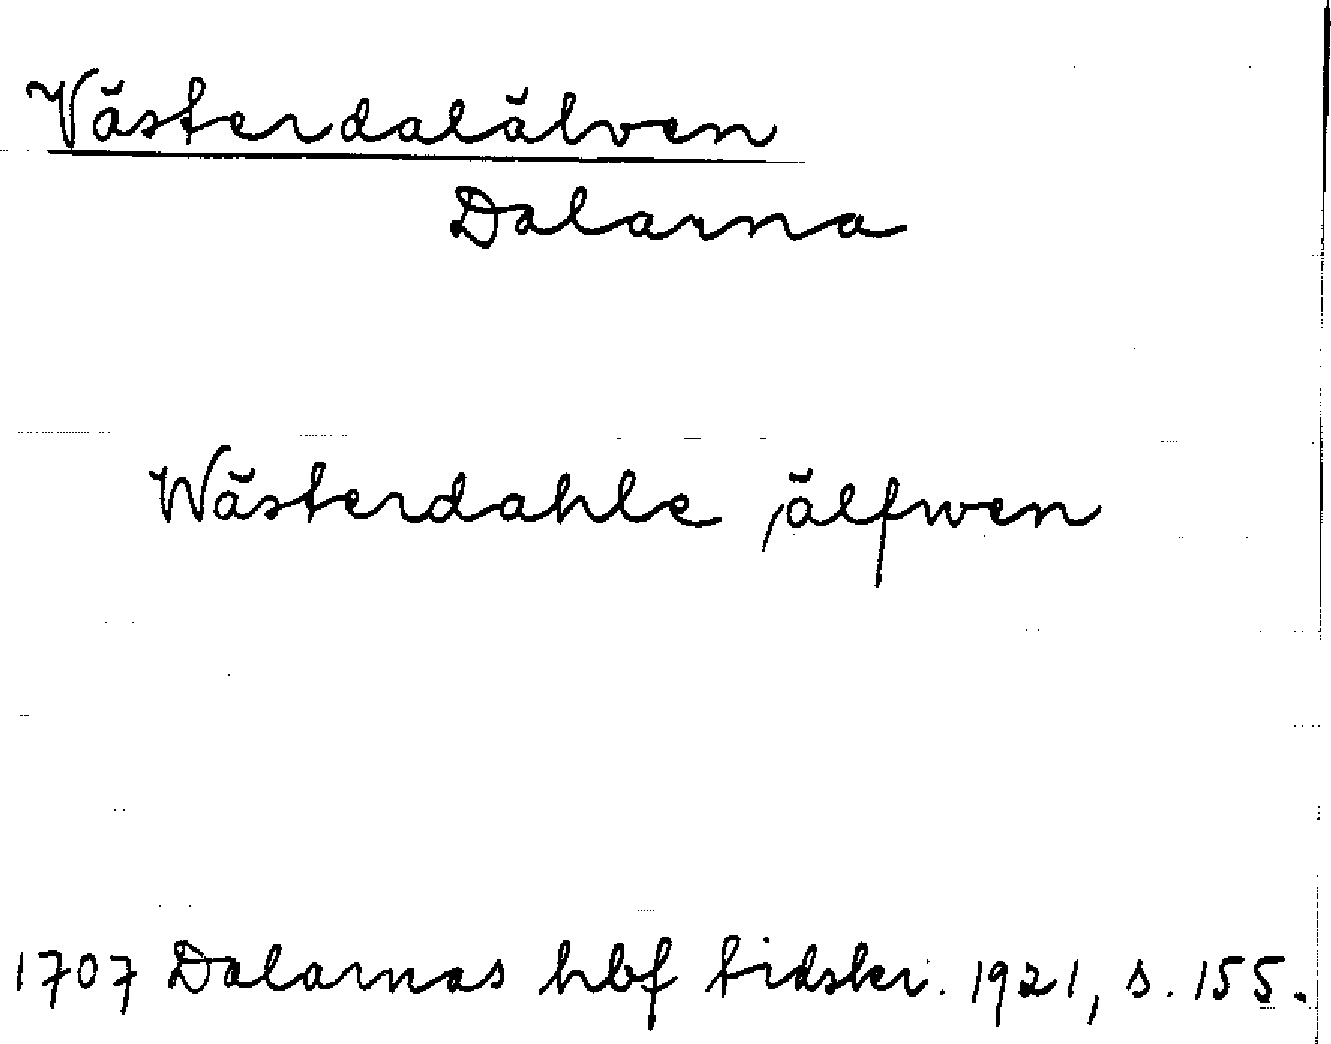 Västerdalälven
Dalarna
Wästerdahle älfwen
1707 Dalarnas hbf tidskr. 1921, s. 155.